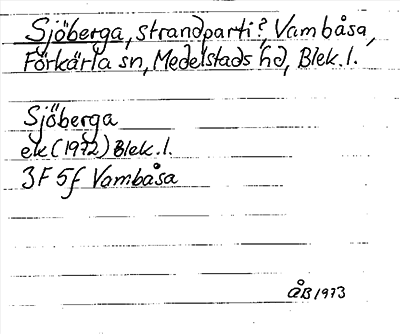 Sjöberga, strandparti?, Vambåsa,
Förkärla sn, Medelstads hd, Blek. l.
Sjöberga
ek (1972) Blek. l.
3F 5f Vambåsa
ÅB 1973